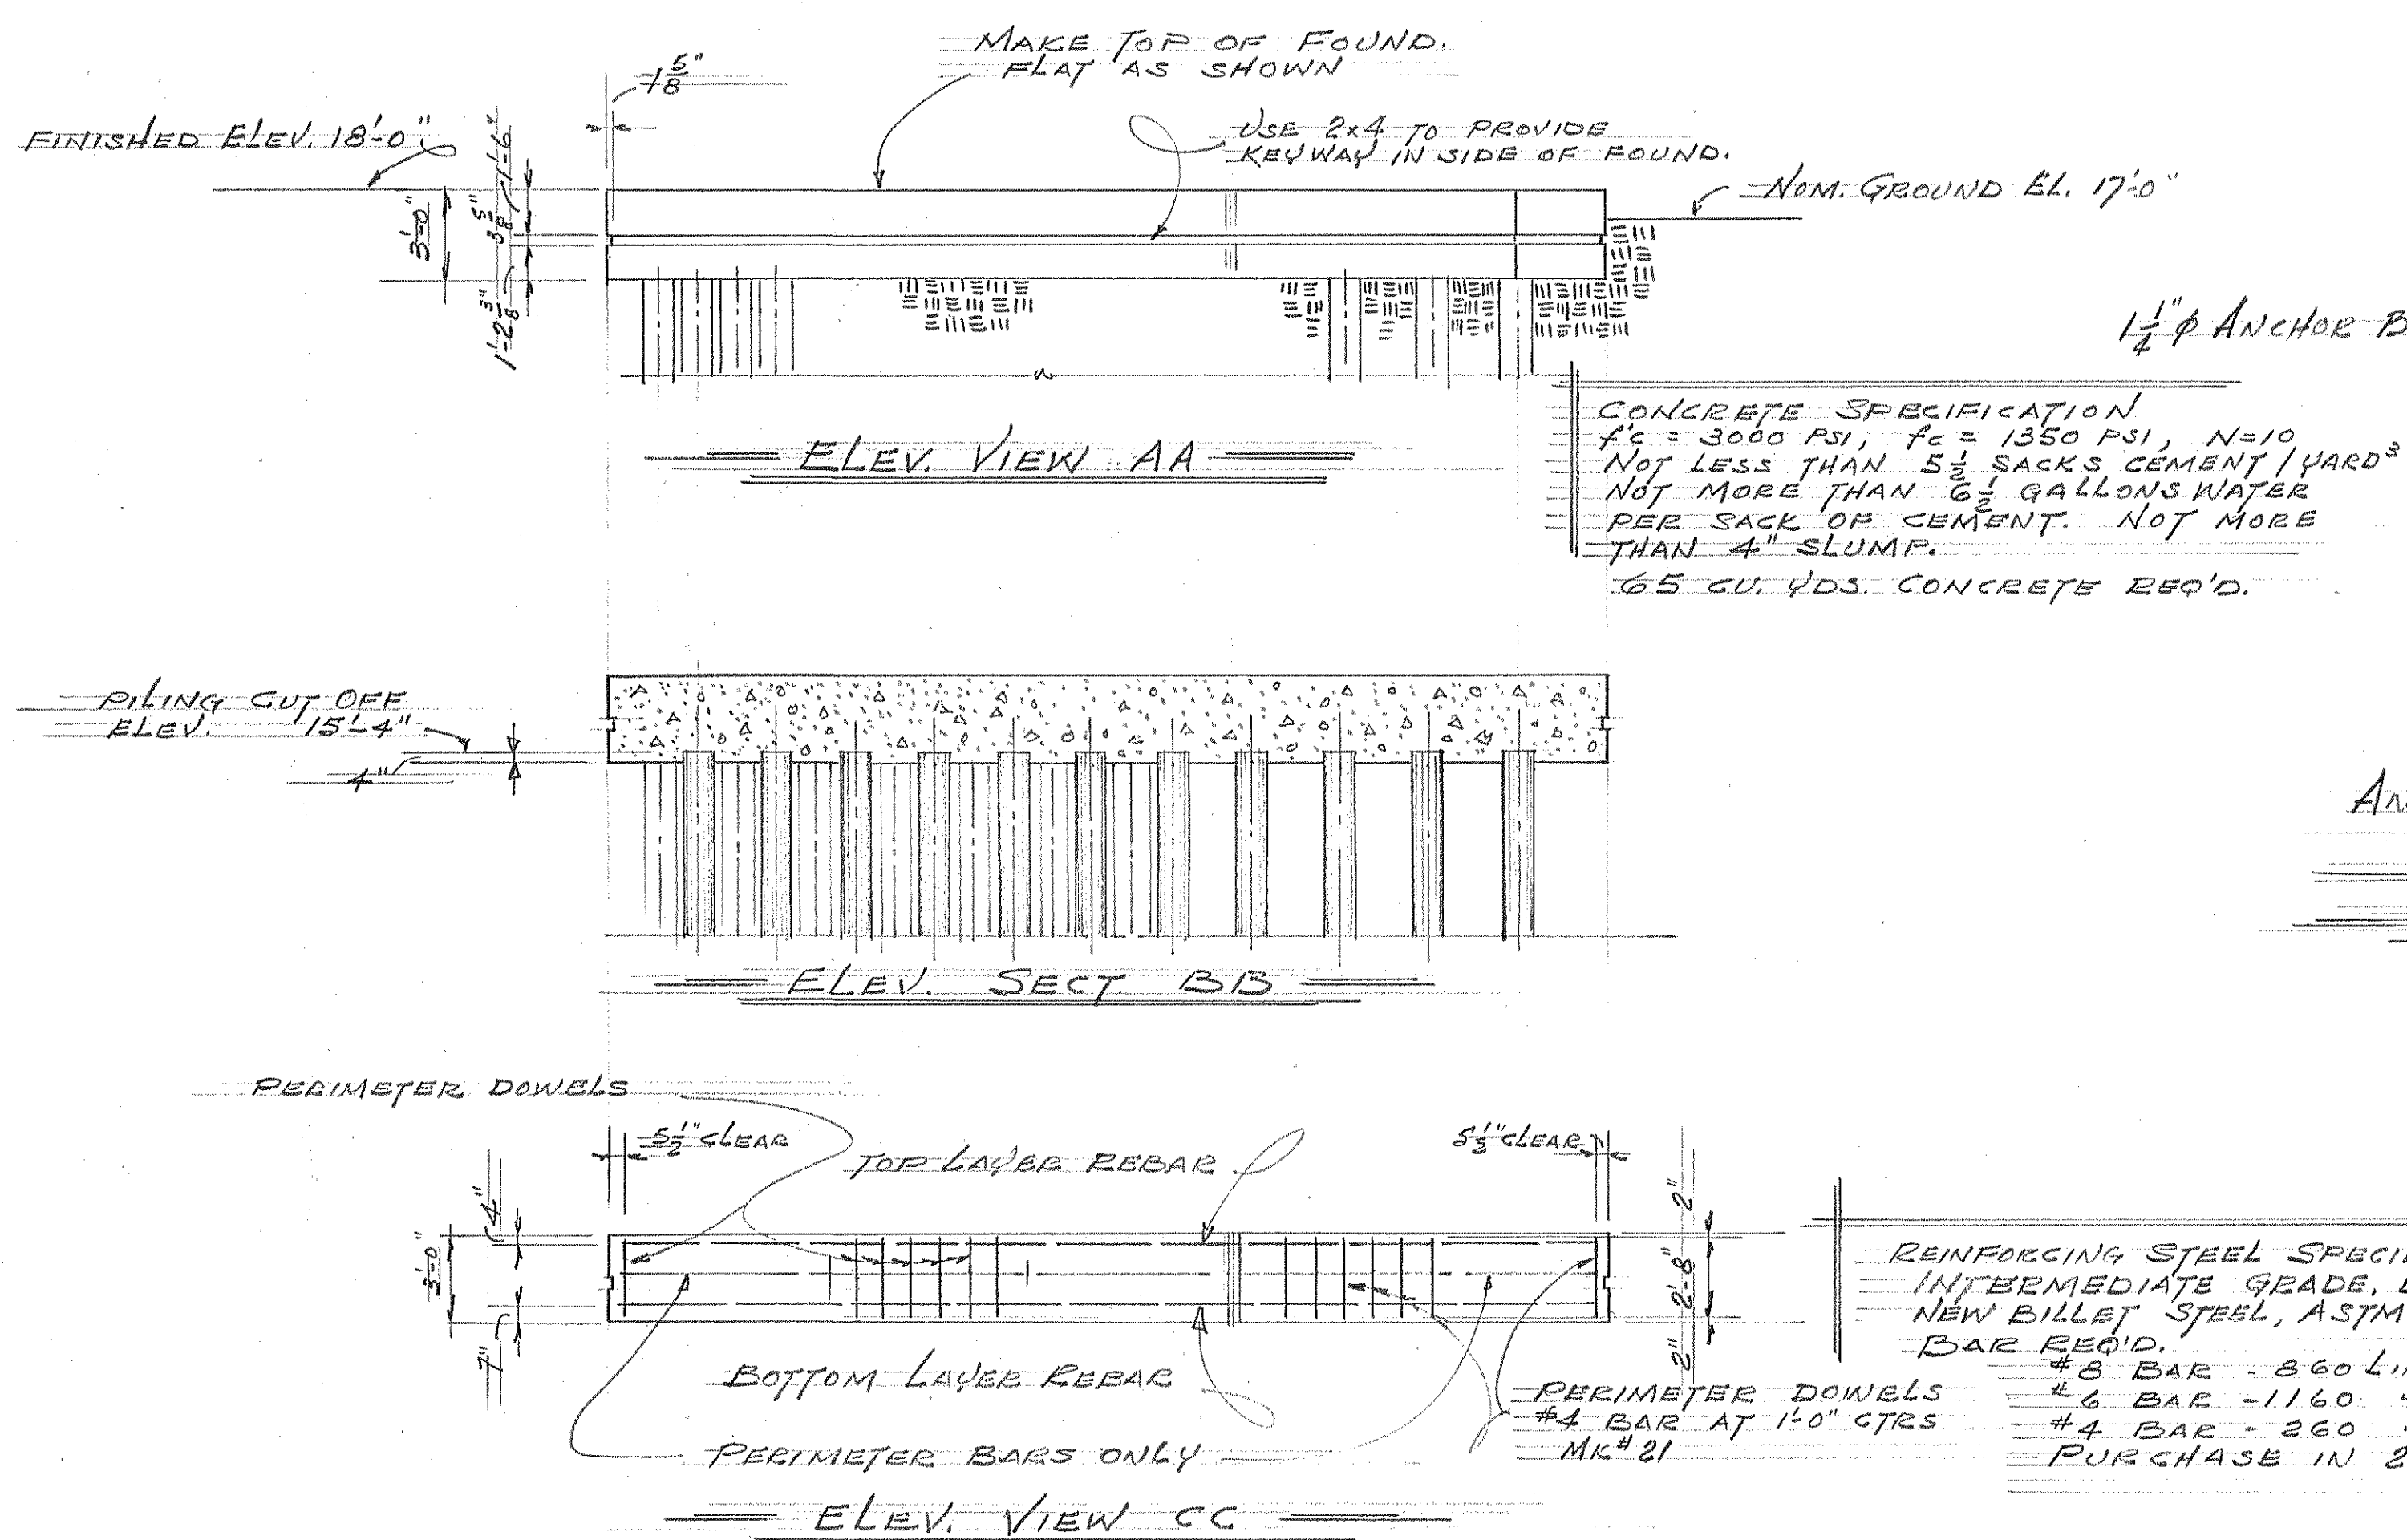 MAKE TOP OF FOUND.
FLAT AS SHOWN
1 5/8"
FINISHED ELEV. 18'-0"
USE 2x4 TO PROVIDE
KEYWAY IN SIDE OF FOUND.
NOM. GROUND EL. 17'-0"
3'-0"
1'-6"
3 5/8"
1'-2 3/8"
1 1/4" ϕ ANCHOR B
ELEV. VIEW AA
CONCRETE SPECIFICATION
f'c = 3000 PSI, fc = 1350 PSI, N=10
NOT LESS THAN 5 1/2 SACKS CEMENT / YARD³
NOT MORE THAN 6 1/2 GALLONS WATER
PER SACK OF CEMENT. NOT MORE
THAN 4" SLUMP.
65 CU. YDS. CONCRETE REQ'D.
PILING CUT OFF
ELEV. 15'-4"
4"
AN
ELEV. SECT BB
PERIMETER DOWELS
5 1/2" CLEAR
TOP LAYER REBAR
5 1/2" CLEAR
4"
3'-0"
7"
2"
2'-8"
2"
BOTTOM LAYER REBAR
PERIMETER BARS ONLY
PERIMETER DOWELS
#4 BAR AT 1'-0" CTRS
MK# 21
REINFORCING STEEL SPECI
INTERMEDIATE GRADE,
NEW BILLET STEEL, ASTM
BAR REQ'D.
#8 BAR - 860 LI
#6 BAR - 1160
#4 BAR - 260
PURCHASE IN 2
ELEV. VIEW CC